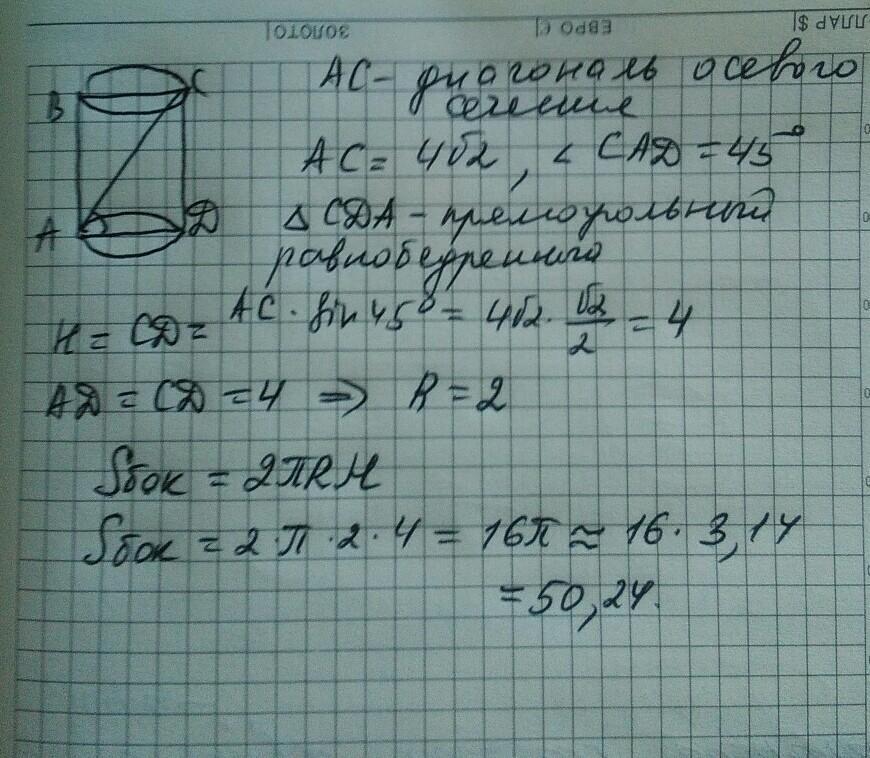 ЛЛАР $| ЕВРО €| ЗОЛОТО|
B C
A D
AC - диагональ осевого
сечения
AC = 4√2, ∠ CAD = 45°
△ CDA - прямоугольный
равнобедренного
H = CD = AC · sin 45° = 4√2 · √2/2 = 4
AD = CD = 4 ⇒ R = 2
Sбок = 2πRH
Sбок = 2·π·2·4 = 16π ≈ 16·3,14
= 50,24.